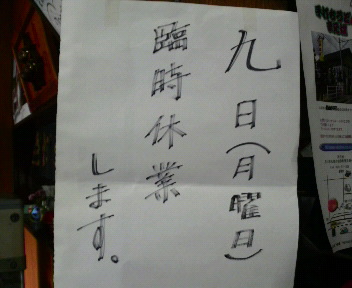 九日(月曜日)
臨時休業
します。